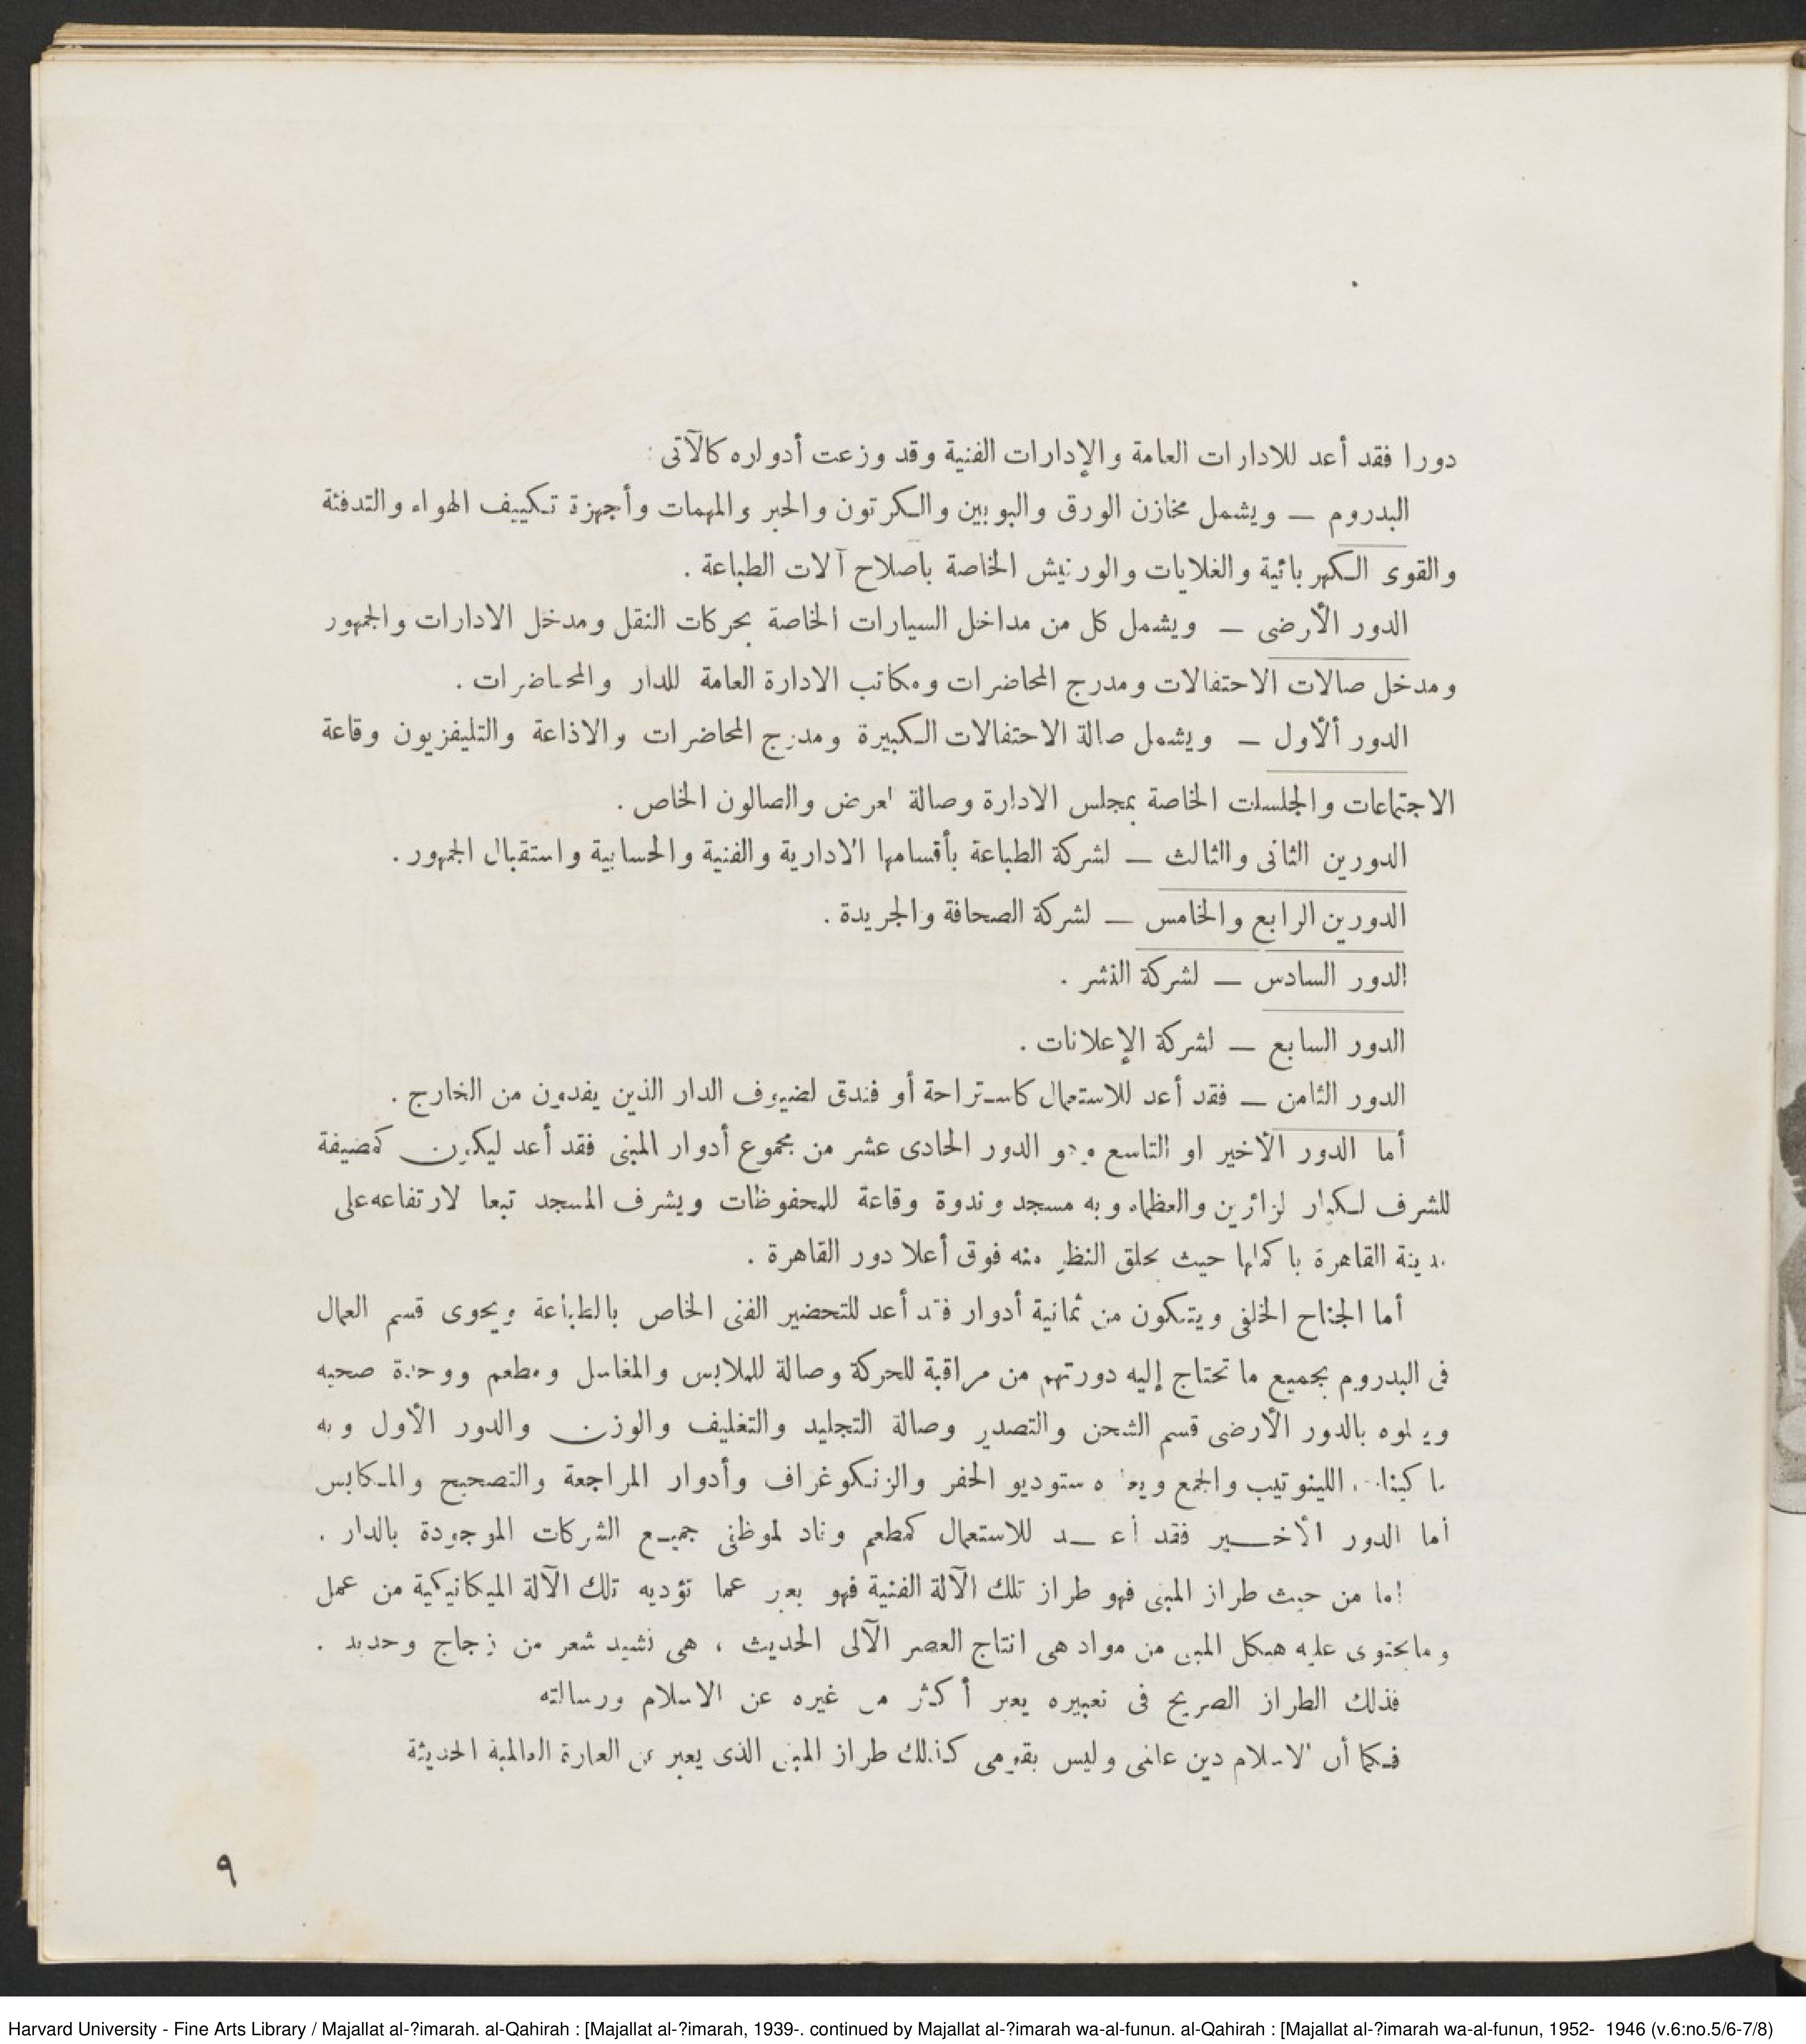 دورا فقد أعد للادارات العامة والإدارات الفنية وقد وزعت أدواره كالآتى :
البدروم — ويشمل مخازن الورق والبوبين والكرتون والحبر والمهمات وأجهزة تكييف الهواء والتدفئة
والقوى الكهربائية والغلايات والورنيش الخاصة باصلاح آلات الطباعة .
الدور الأرضى — ويشمل كل من مداخل السيارات الخاصة بحركات النقل ومدخل الادارات والجمهور
ومدخل صالات الاحتفالات ومدرج المحاضرات ومكاتب الادارة العامة للدار والمحاضرات .
الدور ألأول — ويشمل صالة الاحتفالات الكبيرة ومدرج المحاضرات والاذاعة والتليفزيون وقاعة
الاجتماعات والجلسات الخاصة بمجلس الادارة وصالة العرض والصالون الخاص .
الدورين الثانى والثالث — لشركة الطباعة بأقسامها الادارية والفنية والحسابية واستقبال الجمهور .
الدورين الرابع والخامس — لشركة الصحافة والجريدة .
الدور السادس — لشركة النشر .
الدور السابع — لشركة الإعلانات .
الدور الثامن — فقد أعد للاستعمال كاستراحة أو فندق لضيوف الدار الذين يفدون من الخارج .
أما الدور الأخير او التاسع وهو الدور الحادى عشر من مجموع أدوار المبنى فقد أعد ليكون كمضيفة
للشرف لكبار لزائرين والعظماء وبه مسجد وندوة وقاعة للمحفوظات ويشرف المسجد تبعا لارتفاعه على
مدينة القاهرة باكملها حيث يحلق النظر منه فوق أعلا دور القاهرة .
أما الجناح الخلفى ويتكون من ثمانية أدوار فقد أعد للتحضير الفنى الخاص بالطباعة ويحوى قسم العمال
فى البدروم بجميع ما تحتاج إليه دورتهم من مراقبة للحركة وصالة للملابس والمغاسل ومطعم ووحدة صحيه
ويعلوه بالدور الأرضى قسم الشحن والتصدير وصالة التجليد والتغليف والوزن والدور الأول وبه
ماكينات اللينوتيب والجمع ستوديو الحفر والزنكوغراف وأدوار المراجعة والتصحيح والمكابس
أما الدور الأخير فقد أعد للاستعمال كمطعم وناد لموظفى جميع الشركات الموجودة بالدار .
أما من حيث طراز المبنى فهو طراز تلك الآلة الفنية فهو يعبر عما تؤديه تلك الآلة الميكانيكية من عمل
ومايحتوى عليه هيكل المبنى من مواد هى انتاج العصر الآلى الحديث ، هى نشيد شعر من زجاج وحديد .
فذلك الطراز الصريح فى تعبيره يعبر أكثر من غيره عن الاسلام ورسالته
فكما أن الاسلام دين عالمى وليس بقومى كذلك طراز المبنى الذى يعبر عن العمارة العالمية الحديثة
٩
Harvard University - Fine Arts Library / Majallat al-?imarah. al-Qahirah : [Majallat al-?imarah, 1939-. continued by Majallat al-?imarah wa-al-funun. al-Qahirah : [Majallat al-?imarah wa-al-funun, 1952- 1946 (v.6:no.5/6-7/8)